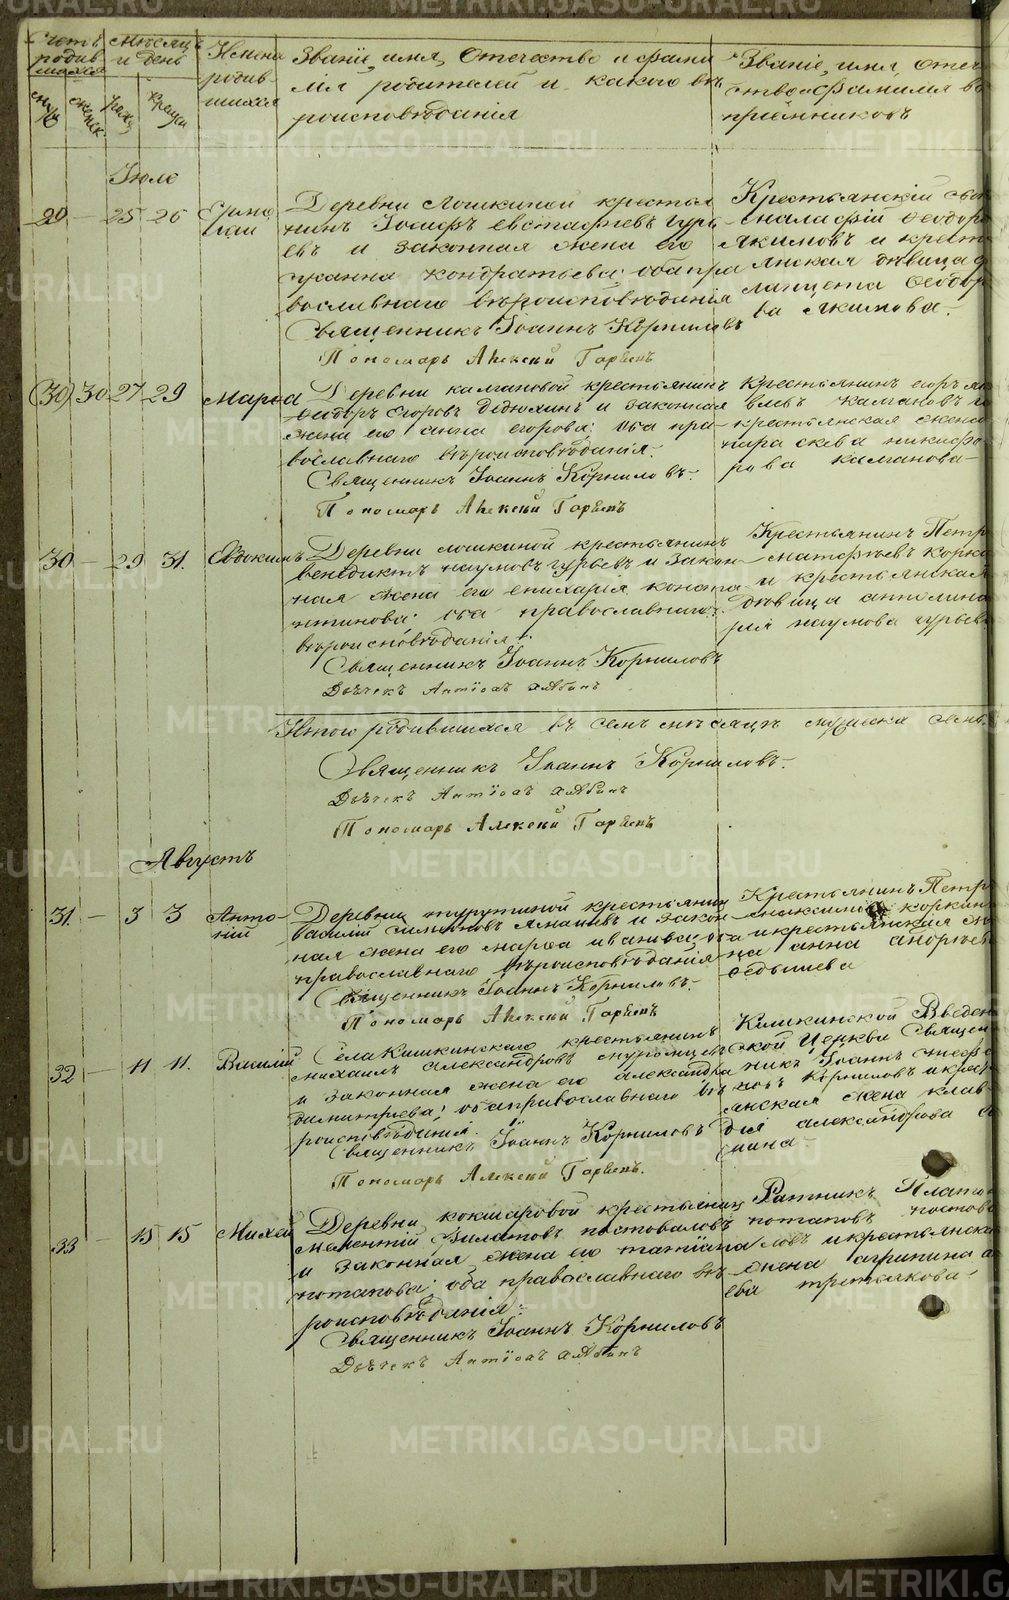 Счетъ родив шихся
Мѣсяцъ и день
Имена родив шихся
Званіе, имя, Отечество и фами
лія родителей и какого вѣ
роисповѣданія
Званіе, имя, отече
ство и фамилія во
пріемниковъ
Іюль
29 — 25 26
Деревни Лошкиной крестья
нинъ Іосифъ Евстафіевъ Гурь
евъ и законная жена его
Кондратьева; оба пра
вославнаго вѣроисповѣданія
Священникъ Іоаннъ Корниловъ
Пономарь Алексѣй
Крестьянскій сынъ
Ѳеодоро
Якимовъ и кресть
янская дѣвица
Ѳеодор
ва Якимова.
(30) 30 27 29 Марѳа
Деревни Калгановой крестьянинъ
Ѳеодоръ Егоровъ Дедюхинъ и законная
жена его Анна Егорова; оба пра
вославнаго вѣроисповѣданія.
Священникъ Іоаннъ Корниловъ.
Пономарь Алексѣй
Крестьянинъ Егоръ
Калгановъ и
крестьянская жена
Параскева Никифо
рова Калганова
30 — 29 31. Евдокимъ
Деревни Лошкиной крестьянинъ
Венедиктъ Наумовъ Гурьевъ и закон
ная жена его Епихарія Конста
нтинова; оба православнаго
вѣроисповѣданія.
Священникъ Іоаннъ Корниловъ
Дьячекъ Антіохъ
Крестьянинъ Петр
Матфѣевъ Корки
и крестьянская
дѣвица Антолина
рія Наумова Гурьев
Итого родившихся въ семъ мѣсяцѣ мужеска семь
Священникъ Іоаннъ Корниловъ.
Дьячекъ Антіохъ
Пономарь Алексѣй
Августъ
31. — 3 3 Анто-
ній
Деревни крестьянин
Василій и закон
ная жена его Марѳа Иванова; оба
православнаго вѣроисповѣданія
Священникъ Іоаннъ Корниловъ.
Пономарь Алексѣй
Крестьянинъ Петр
Коркин
и крестьянская же
на Анна Андрѣева
Ѳедышева
32 — 11 11. Василій
Села Кишкинскаго крестьянинъ
Михаилъ Александровъ
и законная жена его Александра
Димитріева; оба православнаго вѣ
роисповѣданія.
Священникъ Іоаннъ Корниловъ
Пономарь Алексѣй
Кишкинской Введен
ской Церкви Священ
никъ Іоаннъ Стефа
новъ Корниловъ и крест
янская жена Клав
дія Александрова
33 — 15 15 Михей
Деревни Кокшаровой крестьянин
Мелентій Филатовъ Постоваловъ
и законная жена его Татіана
Потапова; оба православнаго вѣ
роисповѣданія:
Священникъ Іоаннъ Корниловъ
Дьячекъ Антіохъ
Ратникъ Плато
Потаповъ Постова
ловъ и крестьянска
жена Агрипина
ева Третьякова.
METRIKI.GASO-URAL.RU